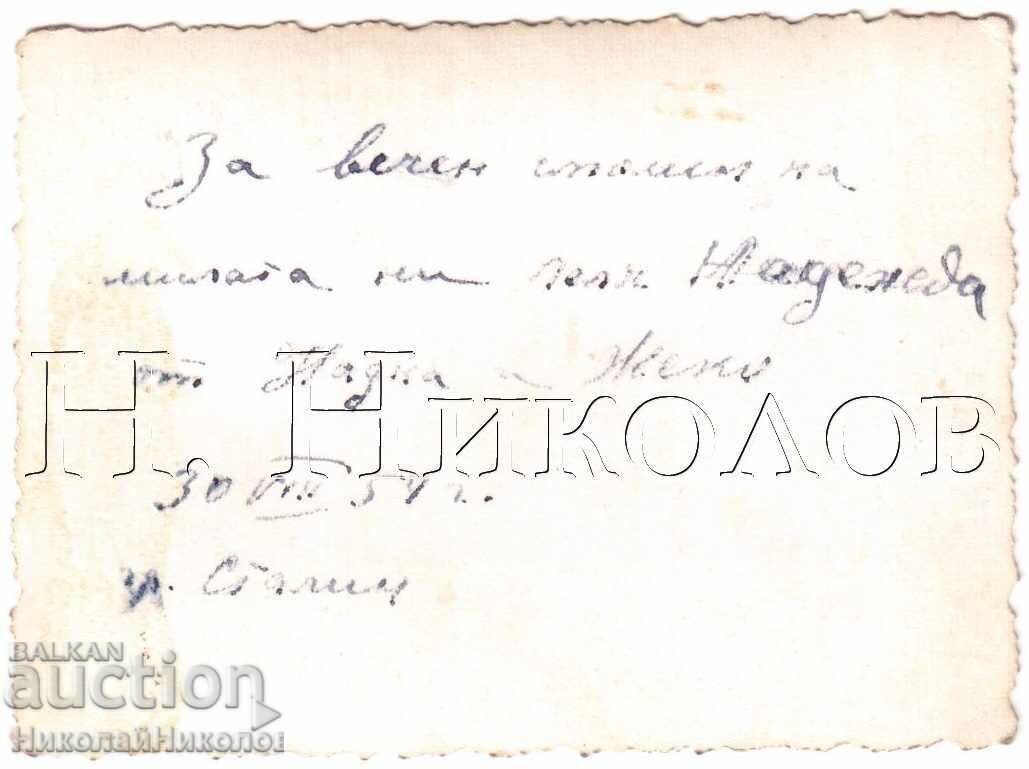 За вечен спомен на
милата ни леля Надежда
от Надка и Жеко
Н. Николов
30 VIII 54 г.
гр. Сталин
BALKAN
auction
НиколайНиколов